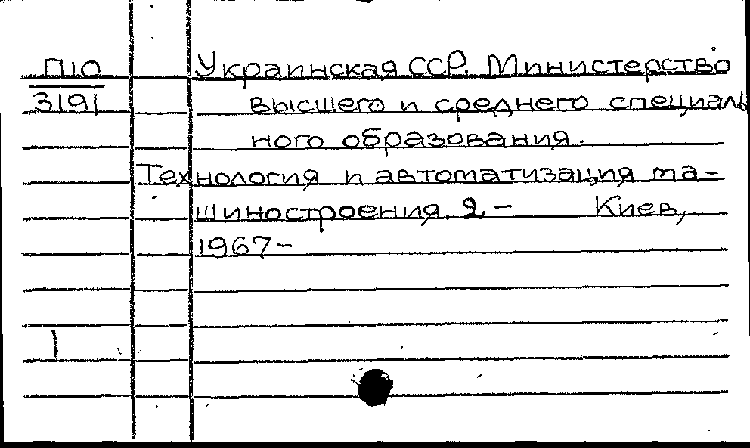 П10
3191
Украинская ССР. Министерство
высшего и среднего специаль
ного образования.
Технология и автоматизация ма-
шиностроения. 2- Киев,
1967-
1